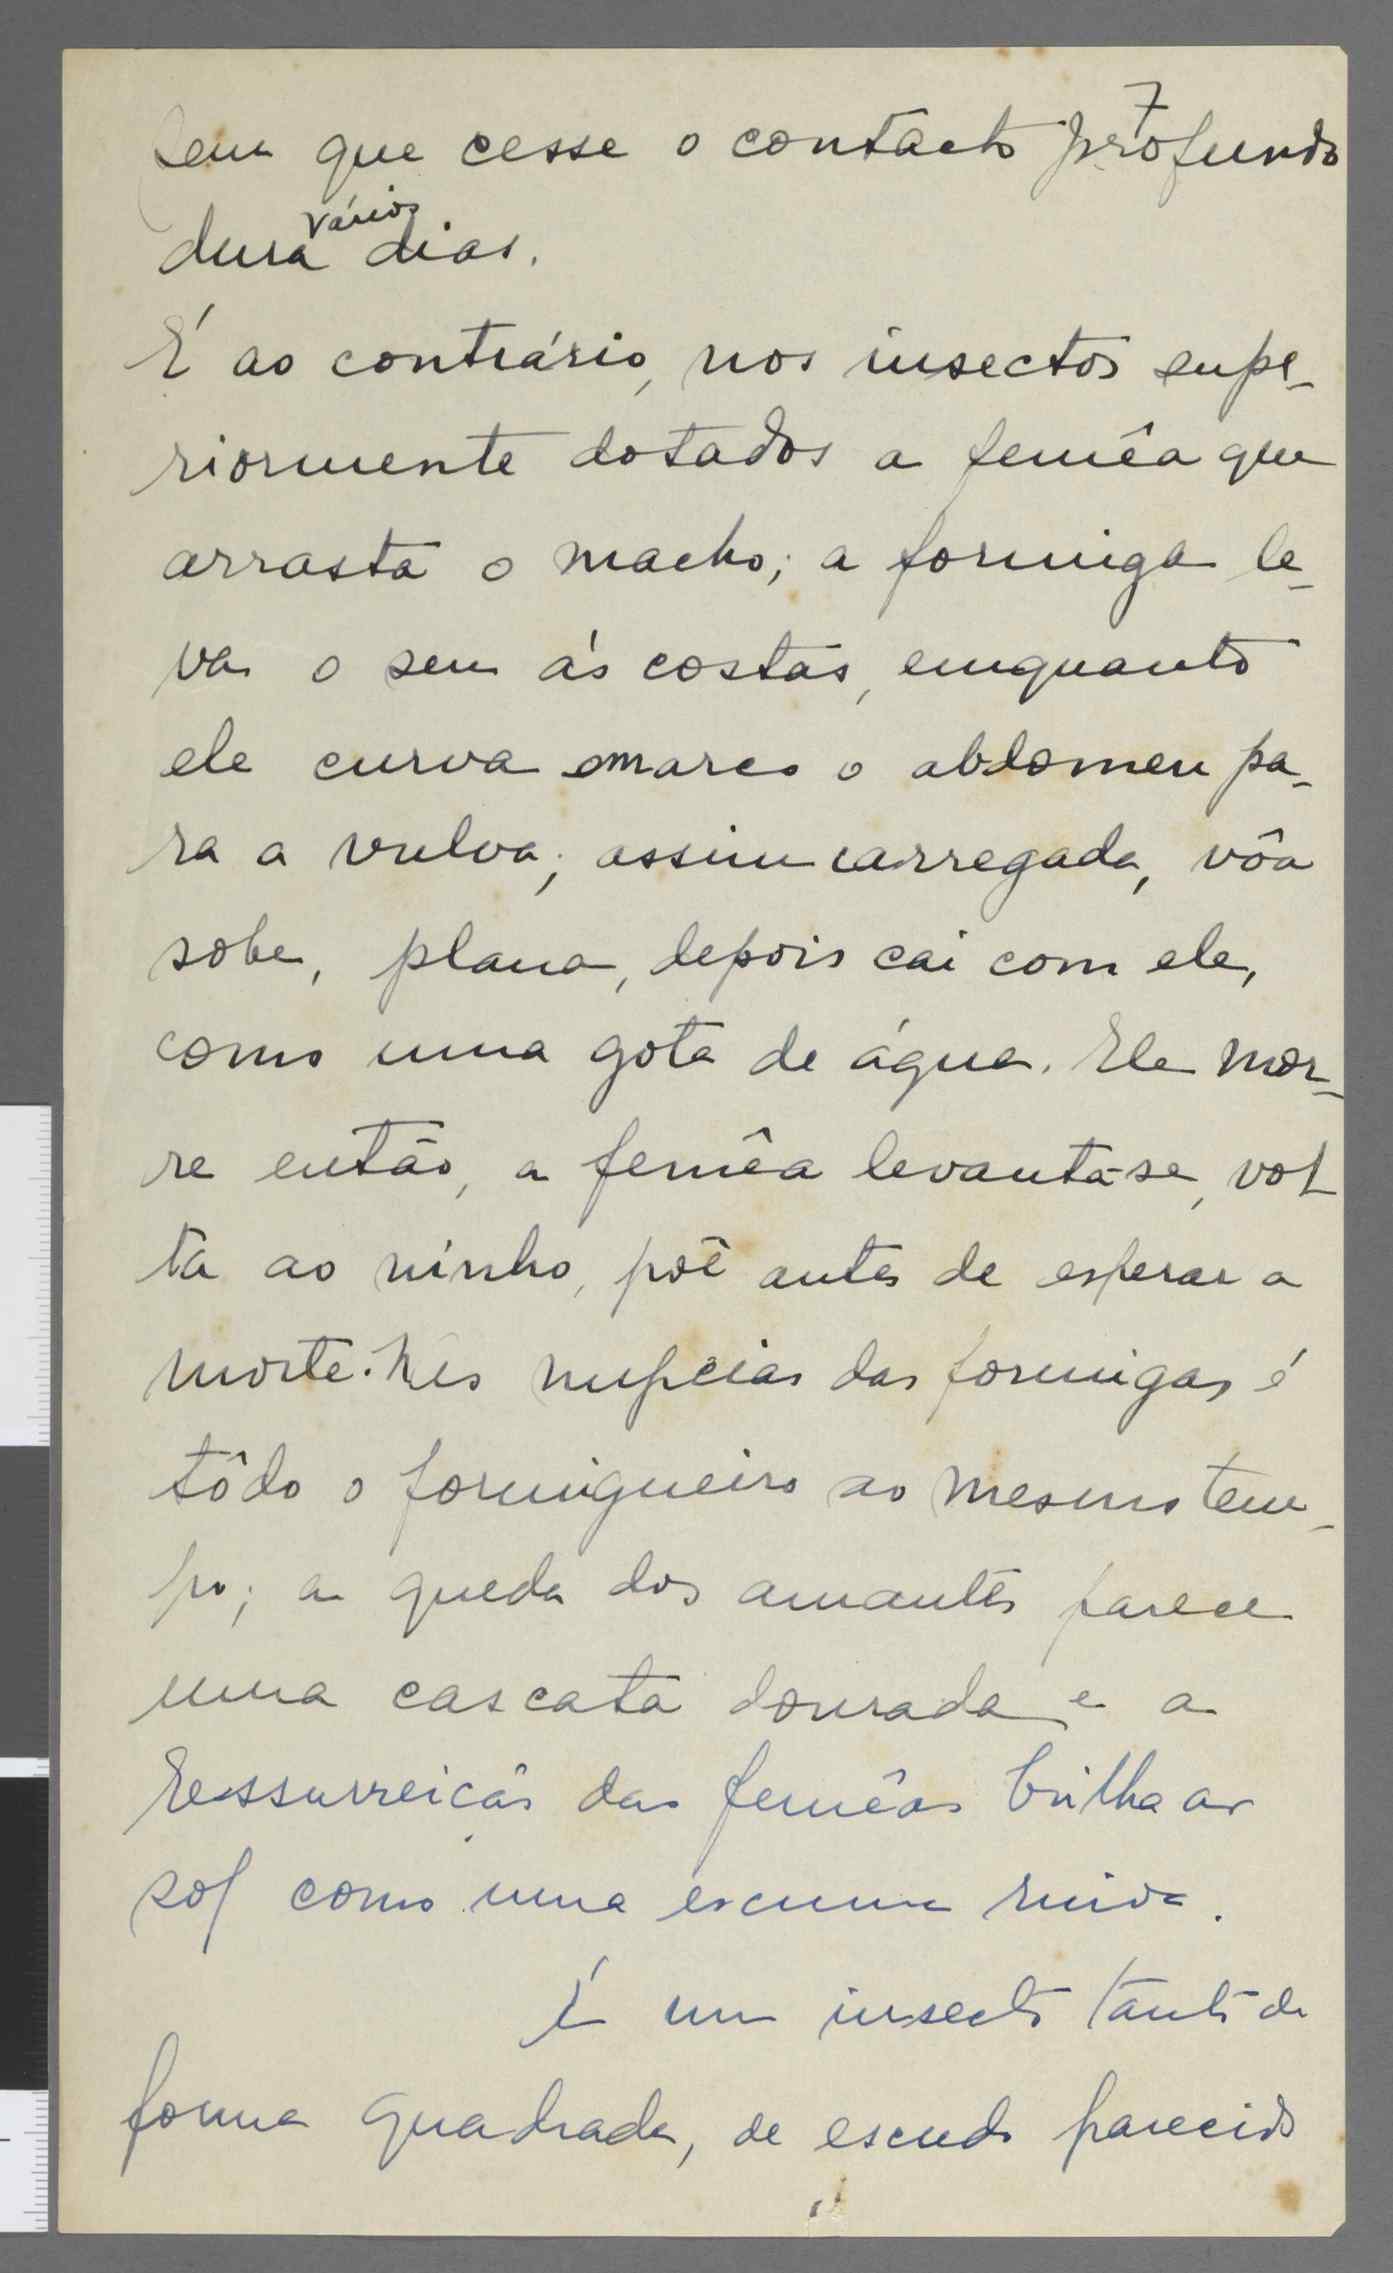 7
sem que cesse o contacto profundo
vários
dura dias.
É ao contrário, nos insectos supe-
riormente dotados a femêa que
arrasta o macho; a formiga le-
va o seu ás costas, emquanto
ele curva em arco o abdomen pa-
ra a vulva; assim carregada, vôa
sobe, plana, depois cai com ele,
como uma gota de água. Ele mor-
re então, a femêa levanta-se, vol
ta ao ninho, põe antes de esperar a
morte. Nas nupcias das formigas é
tôdo o formigueiro ao mesmo tem-
po; a queda dos amantes parece
uma cascata dourada e a
ressurreição das femêas brilha ao
sol como uma escuma ruiva.
É um insecto tanto de
forma quadrada, de escudo parecido